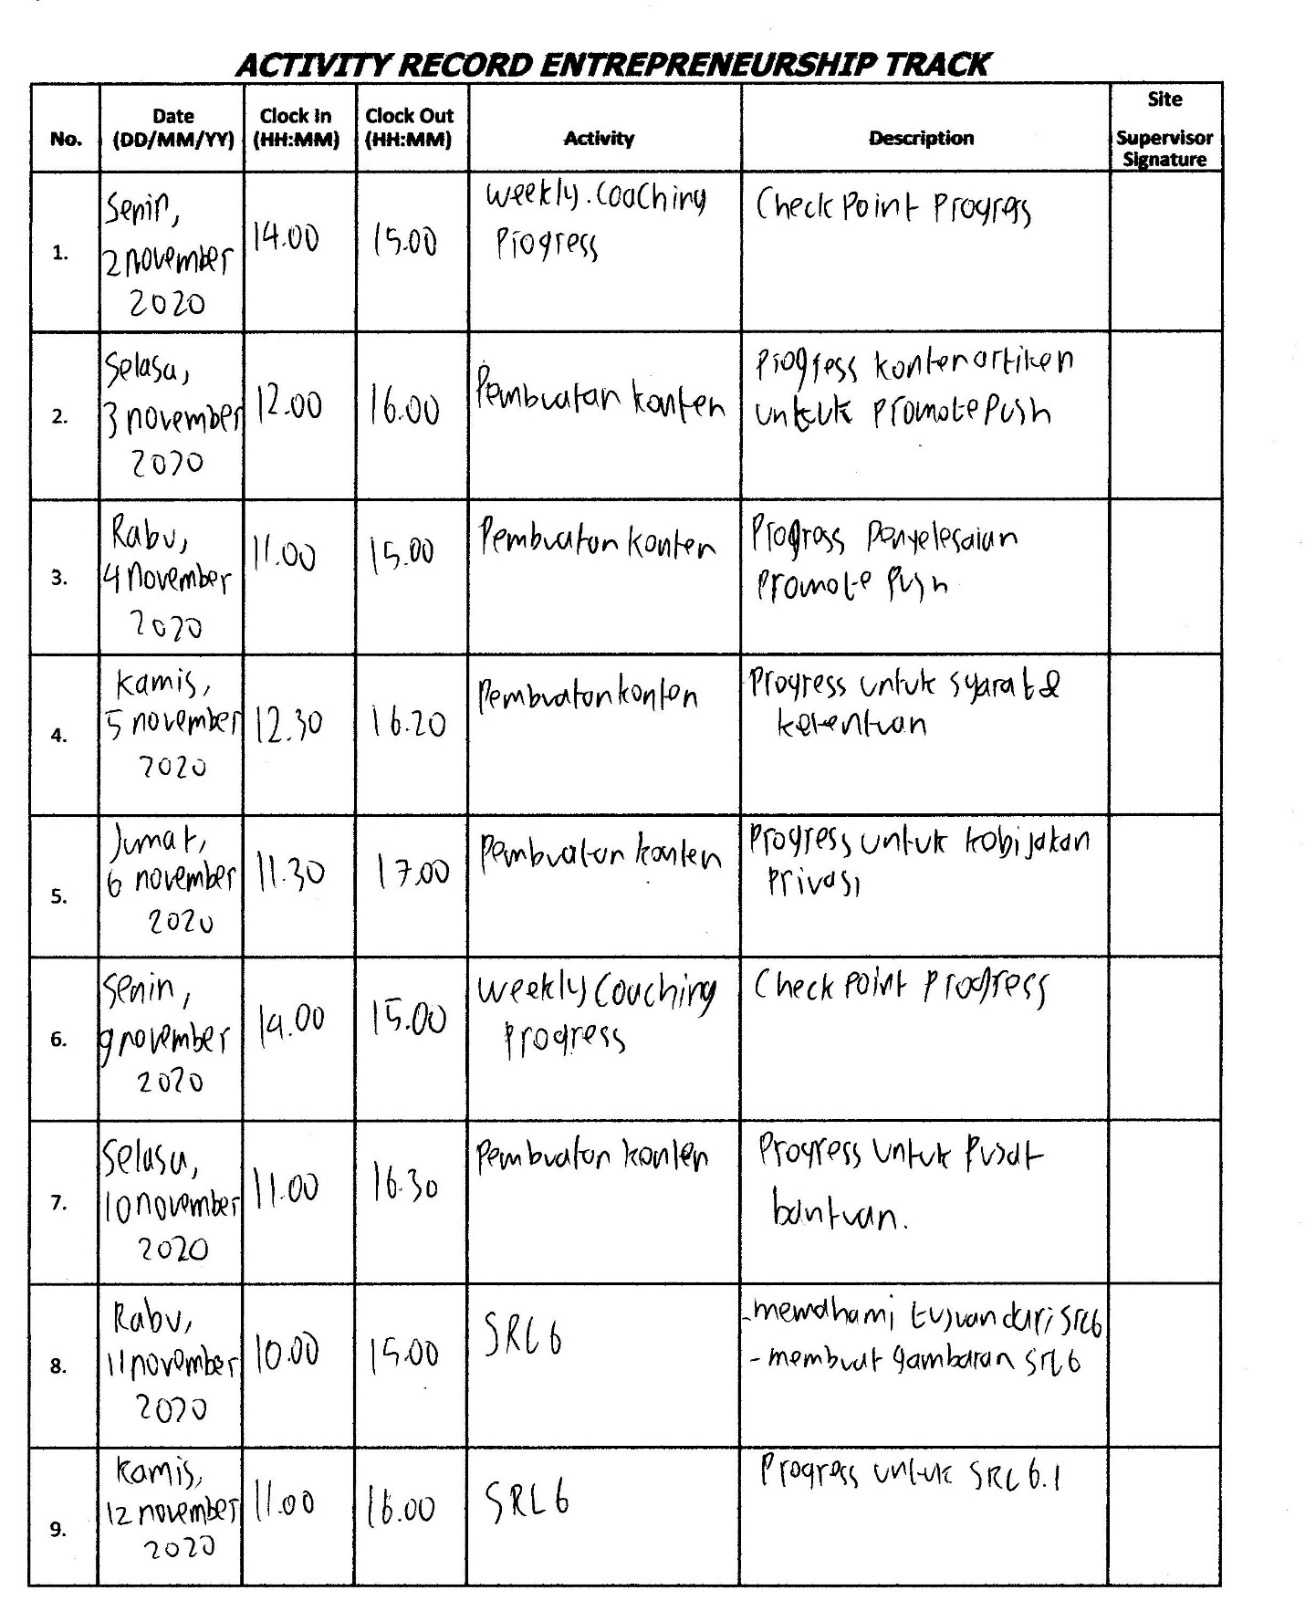 ACTIVITY RECORD ENTREPRENEURSHIP TRACK
No. Date (DD/MM/YY) Clock In (HH:MM) Clock Out (HH:MM) Activity Description Site Supervisor Signature
1. Senin, 2 november 2020 14.00 15.00 weekly.Coaching Progress Check Point Progress
2. Selasa, 3 november 2020 12.00 16.00 Pembuatan konten Progress konten artiken untuk promote Push
3. Rabu, 4 November 2020 11.00 15.00 Pembuatan konten Progress Penyelesaian Promote Push
4. Kamis, 5 november 2020 12.30 16.20 Pembuatan konten Progress untuk syarat & ketentuan
5. Jumat, 6 november 2020 11.30 17.00 Pembuatan konten Progress untuk kebijakan Privasi
6. Senin, 9 november 2020 14.00 15.00 weekly Couching Progress Check Point Progress
7. Selasa, 10 november 2020 11.00 16.30 Pembuatan konten Progress untuk Pusat bantuan.
8. Rabu, 11 november 2020 10.00 15.00 SRL 6 - memahami tujuan dari SRL6
- membuat gambaran SRL 6
9. Kamis, 12 november 2020 11.00 16.00 SRL 6 Progress untuk SRL 6.1